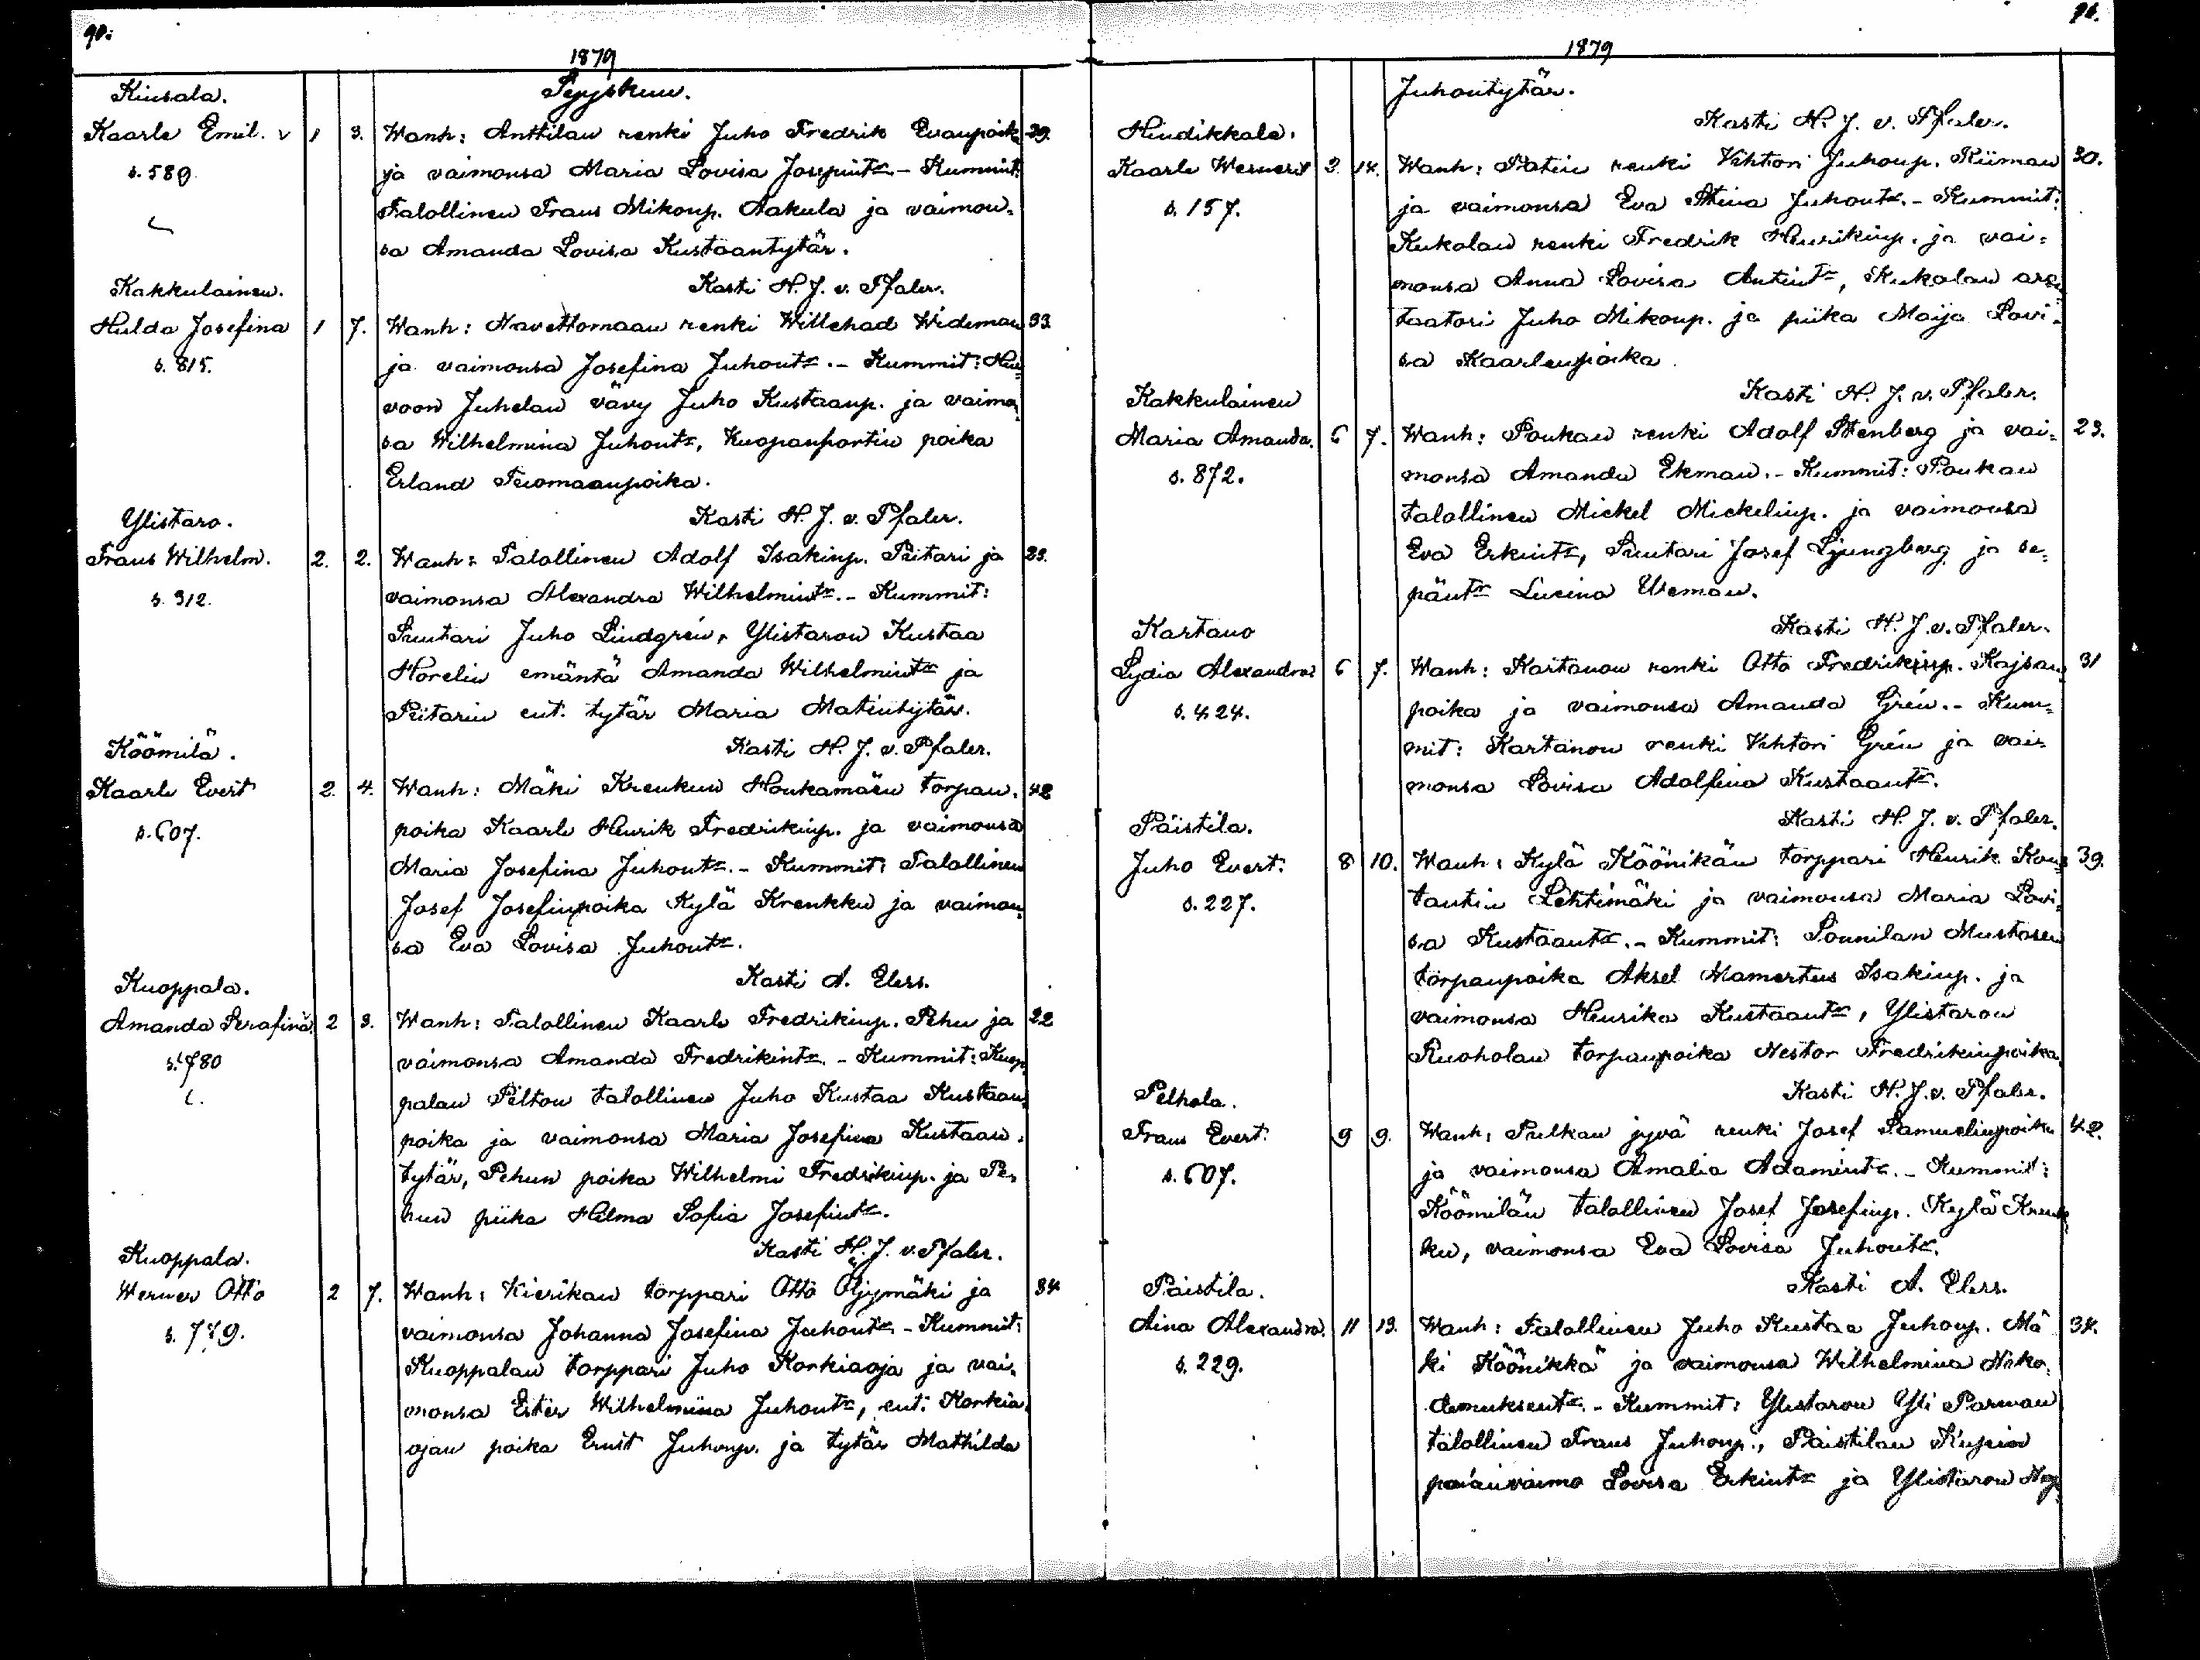 90.
1879
Syyskuu.
Kiusala.
Kaarle Emil. v 1 3. Wanh: Anttilan renki Juho Fredrik Evanpoik 39.
s. 589. ja vaimonsa Maria Lovisa Josepintr. - Kummit:
Talollinen Frans Mikonp. Aakula ja vaimon-
sa Amanda Lovisa Kustaantytär.
Kasti H. J. v. Pfaler.
Kakkulainen.
Hulda Josefina 1 7. Wanh: Navettomaan renki Willehad Wideman 33.
s. 815. ja vaimonsa Josefina Juhontr. - Kummit:
voon Juhelan vävy Juho Kustaanp. ja vaimon
sa Wilhelmina Juhontr, Kuopanportin poika
Erland Tuomaanpoika.
Kasti H. J. v. Pfaler.
Ylistaro.
Frans Wilhelm. 2. 2. Wanh: Talollinen Adolf Isakinp. Piitari ja 23.
s. 312. vaimonsa Alexandra Wilhelmintr. - Kummit:
Suutari Juho Lindgrén, Ylistaron Kustaa
Horelin emäntä Amanda Wilhelmintr ja
Piitarin ent. tytär Maria Matintytär.
Kasti H. J. v. Pfaler.
Köömilä.
Kaarle Evert 2. 4. Wanh: Mäki Krenkun Honkamäen torpan- 42
s. 607. poika Kaarle Henrik Fredrikinp. ja vaimonsa
Maria Josefina Juhontr. - Kummit: Talollinen
Josef Josefinpoika Kylä Krenkku ja vaimon-
sa Eva Lovisa Juhontr.
Kasti A. Elers.
Kuoppala.
Amanda Serafina 2 3. Wanh: Talollinen Kaarle Fredrikinp. Pehu ja 22
s. 780 vaimonsa Amanda Fredrikintr. - Kummit: Kuop-
palan Pilton talollinen Juho Kustaa Kustaan-
poika ja vaimonsa Maria Josefina Kustaan-
tytär, Pehun poika Wilhelmi Fredrikinp. ja Pe-
hun piika Hilma Sofia Josefintr.
Kasti H. J. v. Pfaler.
Kuoppala.
Werner Otto 2 7. Wanh: Kierikan torppari Otto Öljymäki ja 34
s. 779. vaimonsa Johanna Josefina Juhontr. - Kummit:
Kuoppalan torppari Juho Korkiaoja ja vai-
monsa Ester Wilhelmiina Juhontr, ent. Korkia-
ojan poika Ernst Juhonp. ja tytär Mathilda
91.
1879
Juhontytär.
Kasti H. J. v. Pfaler.
Hindikkala.
Kaarle Wernerd 3. 14. Wanh: Patin renki Vihtori Juhonp. Kiiman 30.
s. 157. ja vaimonsa Eva Stina Juhontr. - Kummit:
Kukolan renki Fredrik Henrikinp. ja vai-
monsa Anna Lovisa Antintr, Kukolan aren
taatori Juho Mikonp. ja piika Maija Lovi-
sa Kaarlenpoika.
Kasti H. J. v. Pfaler.
Kakkulainen
Maria Amanda. 6 7. Wanh: Poukan renki Adolf Stenberg ja vai- 23.
s. 872. monsa Amanda Ekman. - Kummit: Poukan
talollinen Mickel Mickelinp. ja vaimonsa
Eva Erkintr, Suutari Josef Ljungberg ja se-
päntr Lucina Uleman.
Kasti H. J. v. Pfaler.
Kartano
Lydia Alexandra 6 7. Wanh: Kartanon renki Otto Fredrikinp. Kajsan- 31
s. 424. poika ja vaimonsa Amanda Grén. - Kum-
mit: Kartanon renki Vihtori Grén ja vai-
monsa Lovisa Adolfina Kustaantr.
Kasti H. J. v. Pfaler.
Päistilä.
Juho Evert. 8 10. Wanh: Kylä Köönikän torppari Henrik Kons- 39.
s. 227. tantin Lehtimäki ja vaimonsa Maria Lovi-
sa Kustaantr. - Kummit: Sonnilan Mustasen
torpanpoika Aksel Mamertus Isakinp. ja
vaimonsa Henrika Kustaantr, Ylistaron
Ruoholan torpanpoika Nestor Fredrikinpoika.
Kasti H. J. v. Pfaler.
Pelhola.
Frans Evert. 9 9. Wanh: Pulkan jyvä renki Josef Samuelinpoika 42.
s. 607. ja vaimonsa Amalia Adamintr. - Kummit:
Köömilän talollinen Josef Josefinp. Kylä Krenk-
ku, vaimonsa Eva Lovisa Juhontr.
Kasti A. Elers.
Päistilä.
Aina Alexandra. 11 13. Wanh: Talollinen Juho Kustaa Juhonp. Mä- 34.
s. 229. ki Köönikkä ja vaimonsa Wilhelmina Niko-
demuksentr. - Kummit: Ylistaron Yli Parman
talollinen Frans Juhonp., Päistilän
vaimo Lovisa Erkintr ja Ylistaron